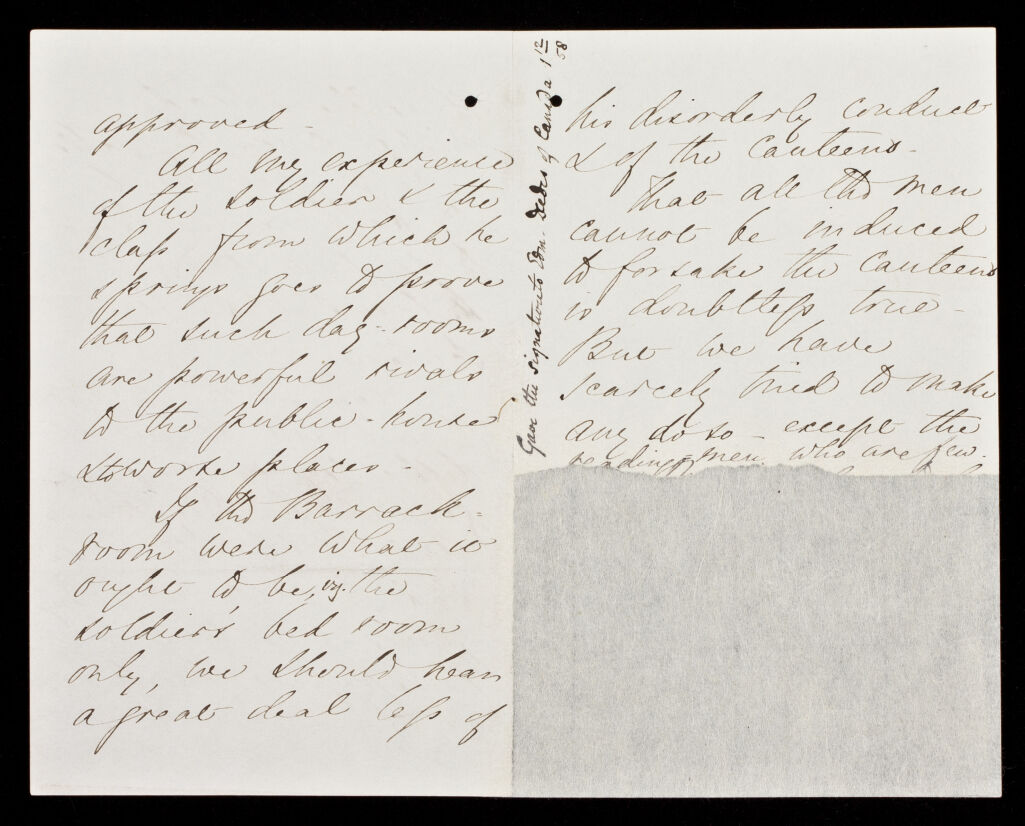 approved -
All my experience
of the soldier & the
class from which he
springs goes to prove
that such day-rooms
are powerful rivals
to the public-house
& to worse places -
If the Barrack-
room were what it
ought to be, viz. the
soldier's bed room
only, we should hear
a great deal less of
Gave the signature to Com. Dedes of Canada 1/12 58
his disorderly conduct
& of the Canteens -
That all the men
cannot be induced
to forsake the Canteens
is doubtless true -
But we have
scarcely tried to make
any do so - except the
reading men who are few.